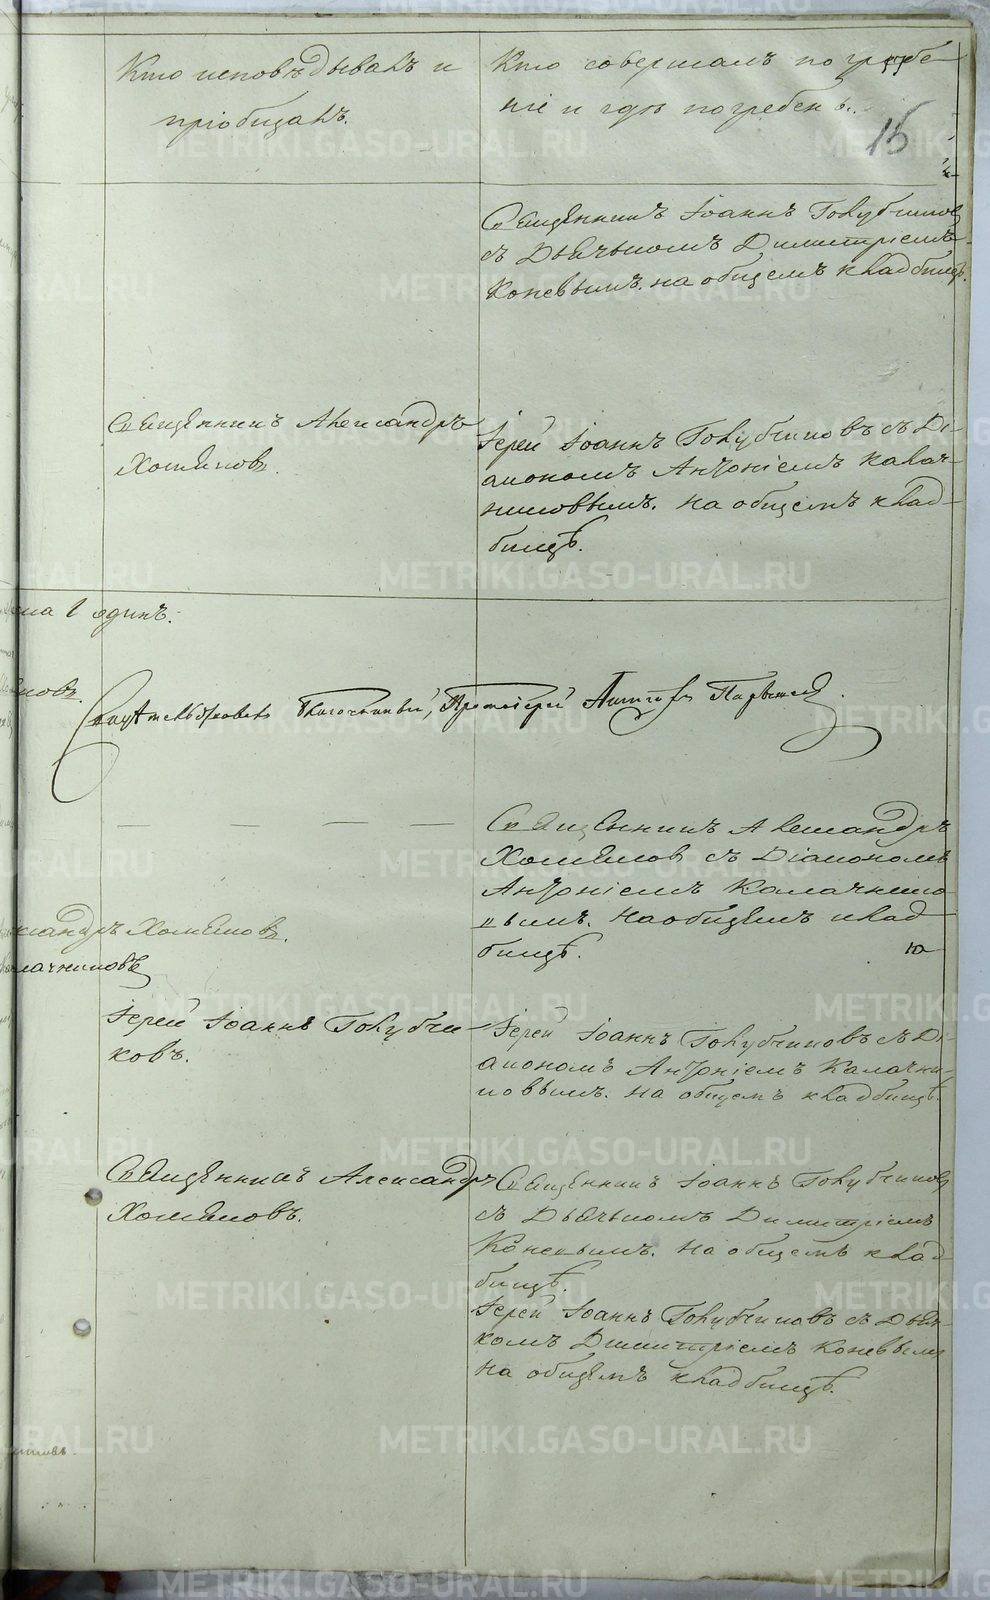 Кто исповѣдывалъ и
пріобщалъ.
Кто совершалъ погребе-
ніе и гдѣ погребенъ.
15
Священникъ Іоаннъ Голубчиковъ
съ Дьячькомъ Димитріемъ
Коневымъ. на общемъ кладбищѣ.
Священникъ Александръ
Хомяковъ.
Іерей Іоаннъ Голубчиковъ съ Ді-
акономъ Антоніемъ Калач-
никовымъ. на общемъ клад-
бищѣ.
1 одинъ.
Свидѣтельствовалъ Благочинный, Протоіерей
Священникъ Александръ
Хомяковъ съ Діакономъ
Антоніемъ Калачнико-
вымъ. На общемъ клад-
бищѣ.
Хомяковъ.
Калачниковъ
Іерей Іоаннъ Голубчи-
ковъ.
Іерей Іоаннъ Голубчиковъ съ Ді-
акономъ Антоніемъ Калачни-
ковымъ. На общемъ кладбищѣ.
Священникъ Александръ
Хомяковъ.
Священникъ Іоаннъ Голубчиковъ
съ Дьячькомъ Димитріемъ
Коневымъ. На общемъ клад-
бищѣ.
Іерей Іоаннъ Голубчиковъ съ Дьяч-
комъ Димитріемъ Коневымъ
на общемъ кладбищѣ.
METRIKI.GASO-URAL.RU